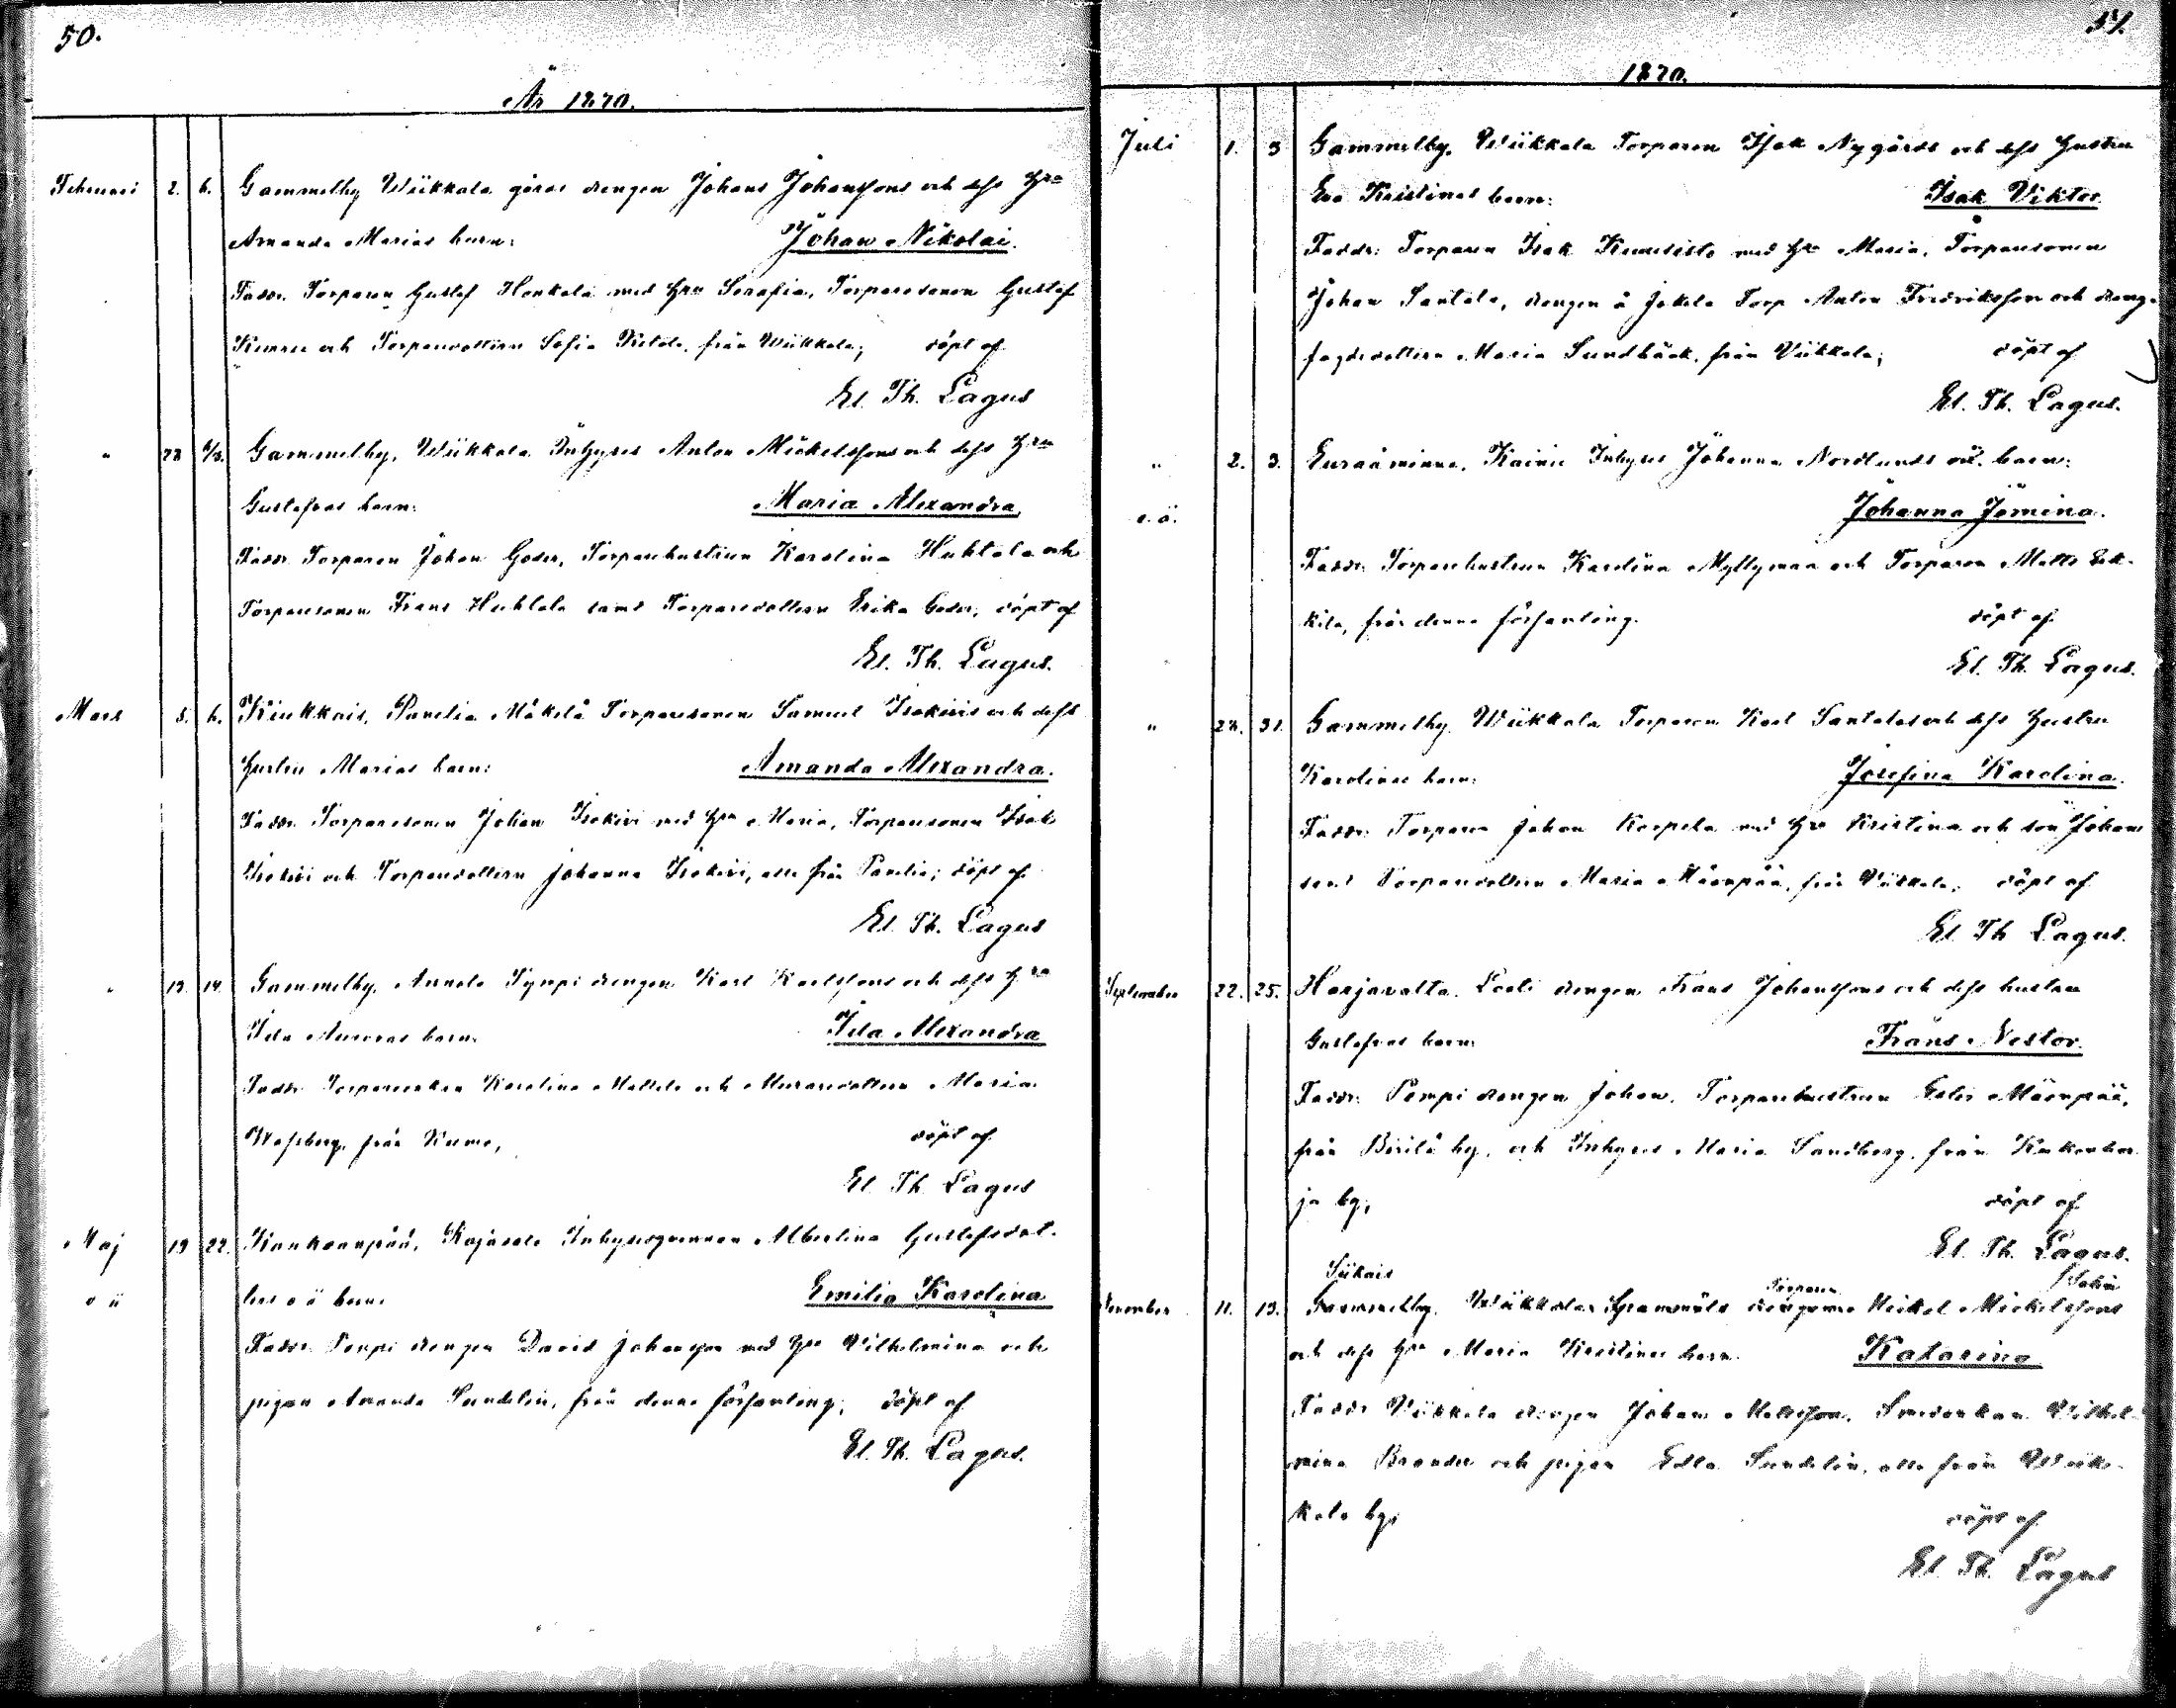 50.
År 1870.
Februari 2. 6. Gammelby Wiikkala gårds drengen Johans Johanssons och dess Hru
Amanda Marias barn: Johan Nikolai.
Faddr. Torparen Gustaf Honkala med Hru Serafia, Torparesonen Gustaf
och Torparedottren Sofia från Wiikkala; döpt af
El. Th. Lagus
" 28 6/3. Gammelby, Wiikkala Inhyses Anton Mickelssons och dess Hru
Gustafvas barn: Maria Alexandra
Faddr. Torparen Johan Goder, Torparehustrun Karolina Huhtala och
Torparesonen Frans Huhtala samt Torparedottern Erika Goder, döpt af
El. Th. Lagus.
Mars 5. 6. Kiukkais, Panelia Mäkelä Torparesonen Samuel Isokivis och dess
Hustru Marias barn: Amanda Alexandra.
Faddr. Torparesonen Johan Isokivi med Hru Maria, Torparesonen Isak
Isokivi och Torparedottern Johanna Isokivi, alla från Panelia; döpt af
El. Th. Lagus
" 13. 14. Gammelby, Annola Pympi drengen Karl Karlssons och dess Hru
Ida Auroras barn: Ida Alexandra
Faddr. Torpareenkan Karolina Mattila och Muraredottern Maria
Wassberg, från Kumo, döpt af
El. Th. Lagus
Maj 19 22. Kankaanpää, Inhysesqvinnan Albertina Gustafsdot-
o ä ters o ä barn: Emilia Karolina
Faddr. Pempi drengen David Johansson med Hru Vilhelmina och
pigan Amanda Sundelin, från denna församling; döpt af
El. Th. Lagus.
51.
1870.
Juli 1. 3 Gammelby, Wiikkala Torparen Isak Nygårds och dess Hustru
Eva Kristinas barn: Isak Viktor
Faddr: Torparen Isak med Hru Maria, Torparesonen
Johan Santala, drengen å Jokela Torp Anton Fredriksson och
Maria Sundbäck, från Viikkala; döpt af
El. Th. Lagus.
" 2. 3. Euraåminne, Inhyses Johanna Nordlunds oä. barn:
o. ä. Johanna Jömina.
Faddr: Torparehustrun Karolina Myllymaa och Torparen Matts
kila, från denna församling. döpt af
El. Th. Lagus.
" 24. 31. Gammelby Wiikkala Torparen Karl Santalas och dess Hustru
Karolinas barn: Josefina Karolina.
Faddr: Torparen Johan Korpela med Hru Kristina och son Johan
samt Torparedottern Maria Mäenpää, från Viikkala; döpt af
El. Th Lagus.
September 22. 25. Harjavalta. drengen Frans Johanssons och dess hustru
Gustafvas barn: Frans Nestor.
Faddr: Pempi drengen Johan, Torparehustrun Mäenpää,
från Pirilä by, och Inhyses Maria Sandberg, från
ja by; döpt af
El. Th. Lagus.
Siikais Torparen
November 11. 13. Gammelby. Wiikkala Mickel Mickelssons
och dess Hru Maria Kristinas barn. Katarina
Faddr Viikkala drengen Johan Mattsson, Smedenkan Wilhel-
mina Brander och pigan Edla Sundelin, alla från Wiik-
kala by; döpt af
El. Th. Lagus